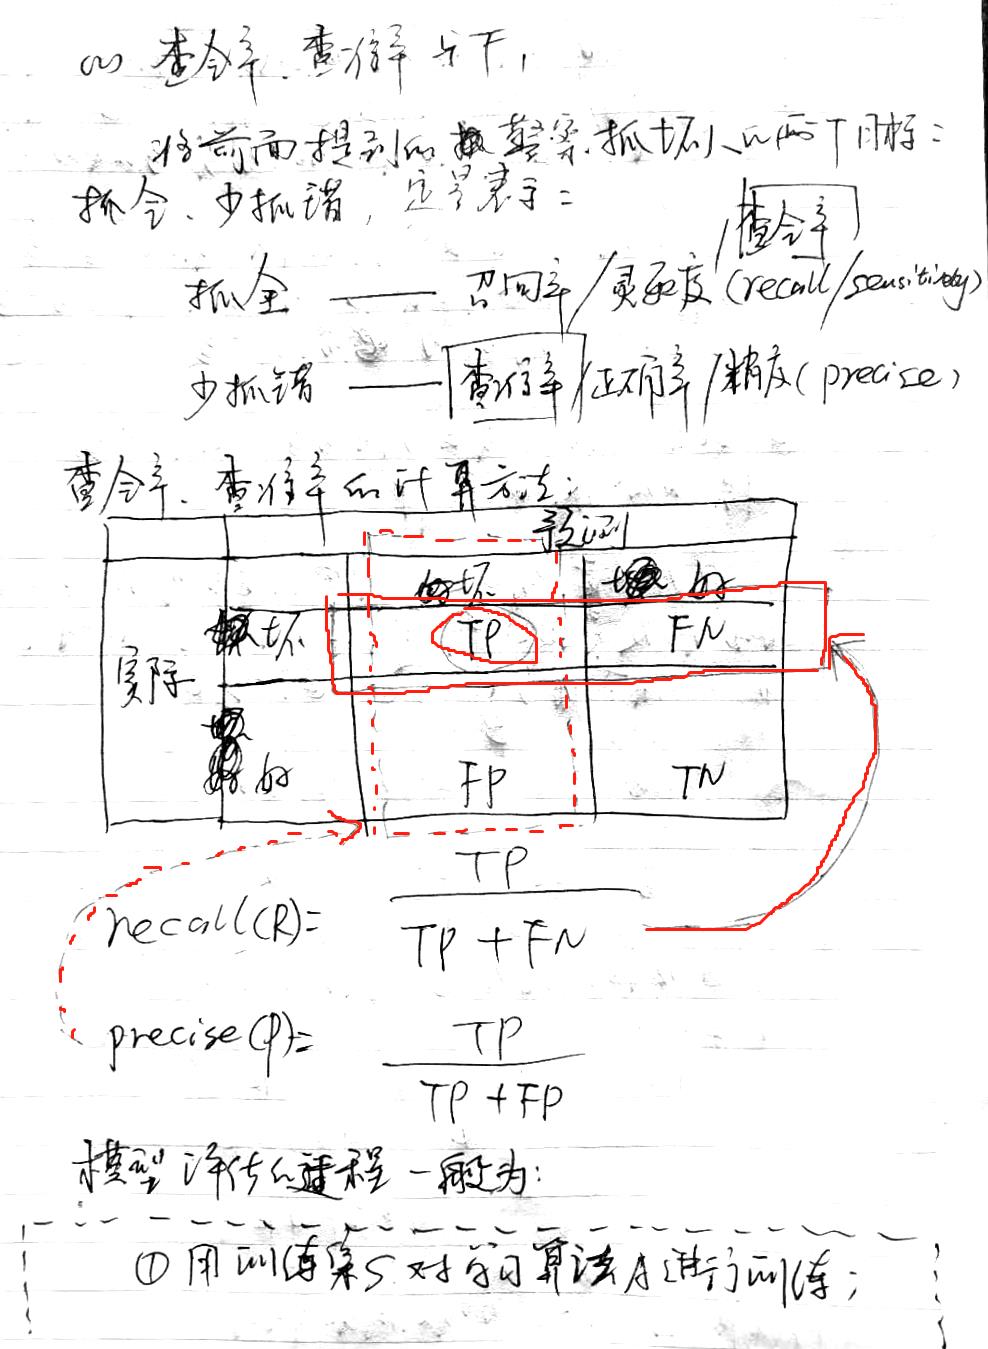 (2) 查全率、查准率与F1
将前面提到的警察抓坏人的两个目标：
抓全、少抓错，定量表示：
查全率
抓全 —— 召回率/灵敏度(recall/sensitivity)
少抓错 —— 查准率/正确率/精度(precise)
查全率、查准率的计算方法：
预测
坏 好
坏 TP FN
实际
好 FP TN
TP
recall(R)=
TP + FN
precise(P)= TP
TP + FP
模型评估的过程一般为：
①用训练集S对学习算法A进行训练；